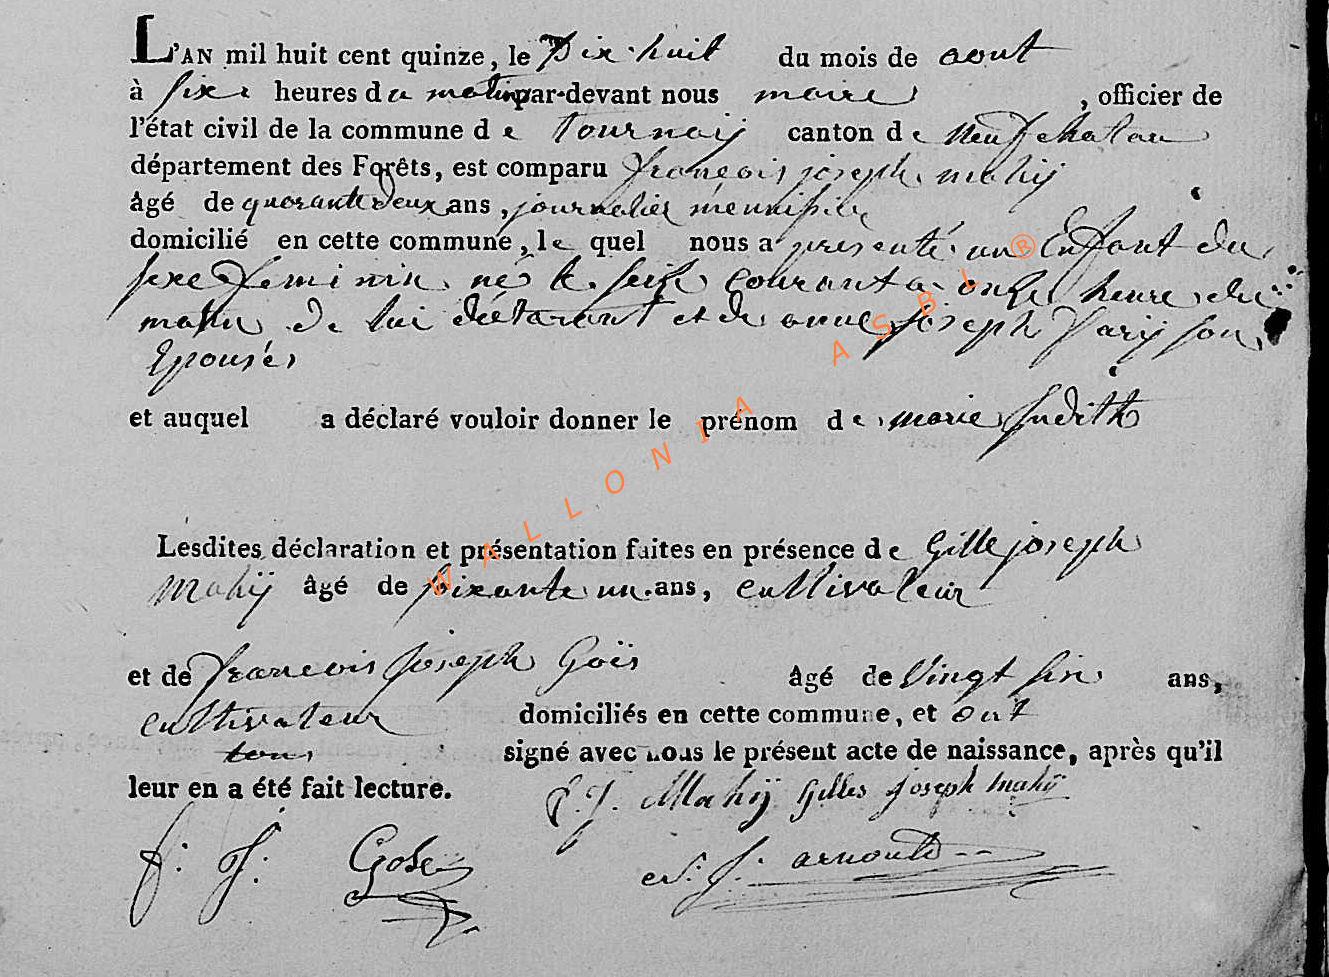 L'AN mil huit cent quinze, le Dix-huit du mois de aout
à six heures du matin par-devant nous maire, officier de
l'état civil de la commune de tournay canton de neufchatau
département des Forêts, est comparu françois joseph mahÿ
âgé de quarante deux ans, journalier menuisier
domicilié en cette commune, le quel nous a presenté un Enfant du
sexe feminin né le seize courant a onze heure du
matin de lui déclarant et de anne joseph parisson
Epouse
et auquel a déclaré vouloir donner le prénom de marie Judith
Lesdites déclaration et présentation faites en présence de Gille joseph
Mahÿ âgé de soixante un ans, cultivateur
et de françois Joseph Goïs âgé de Vingt six ans,
cultivateur domiciliés en cette commune, et ont
tous signé avec nous le présent acte de naissance, après qu'il
leur en a été fait lecture. F. J. Mahÿ Gilles joseph mahÿ
f. J: Gose J: arnould
WALLONIA ASBL ®